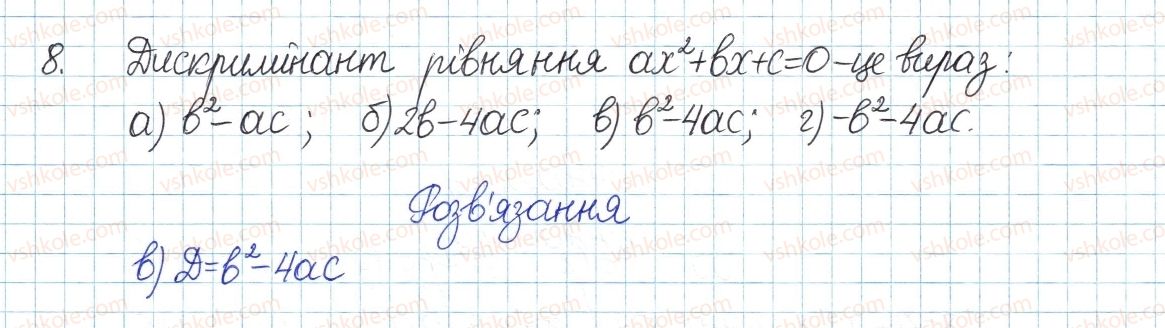 8. Дискримінант рівняння ax²+bx+c=0 – це вираз:
а) b²-ac; б) 2b-4ac; в) b²-4ac; г) -b²-4ac.
Розв'язання
в) Д=b²-4ac